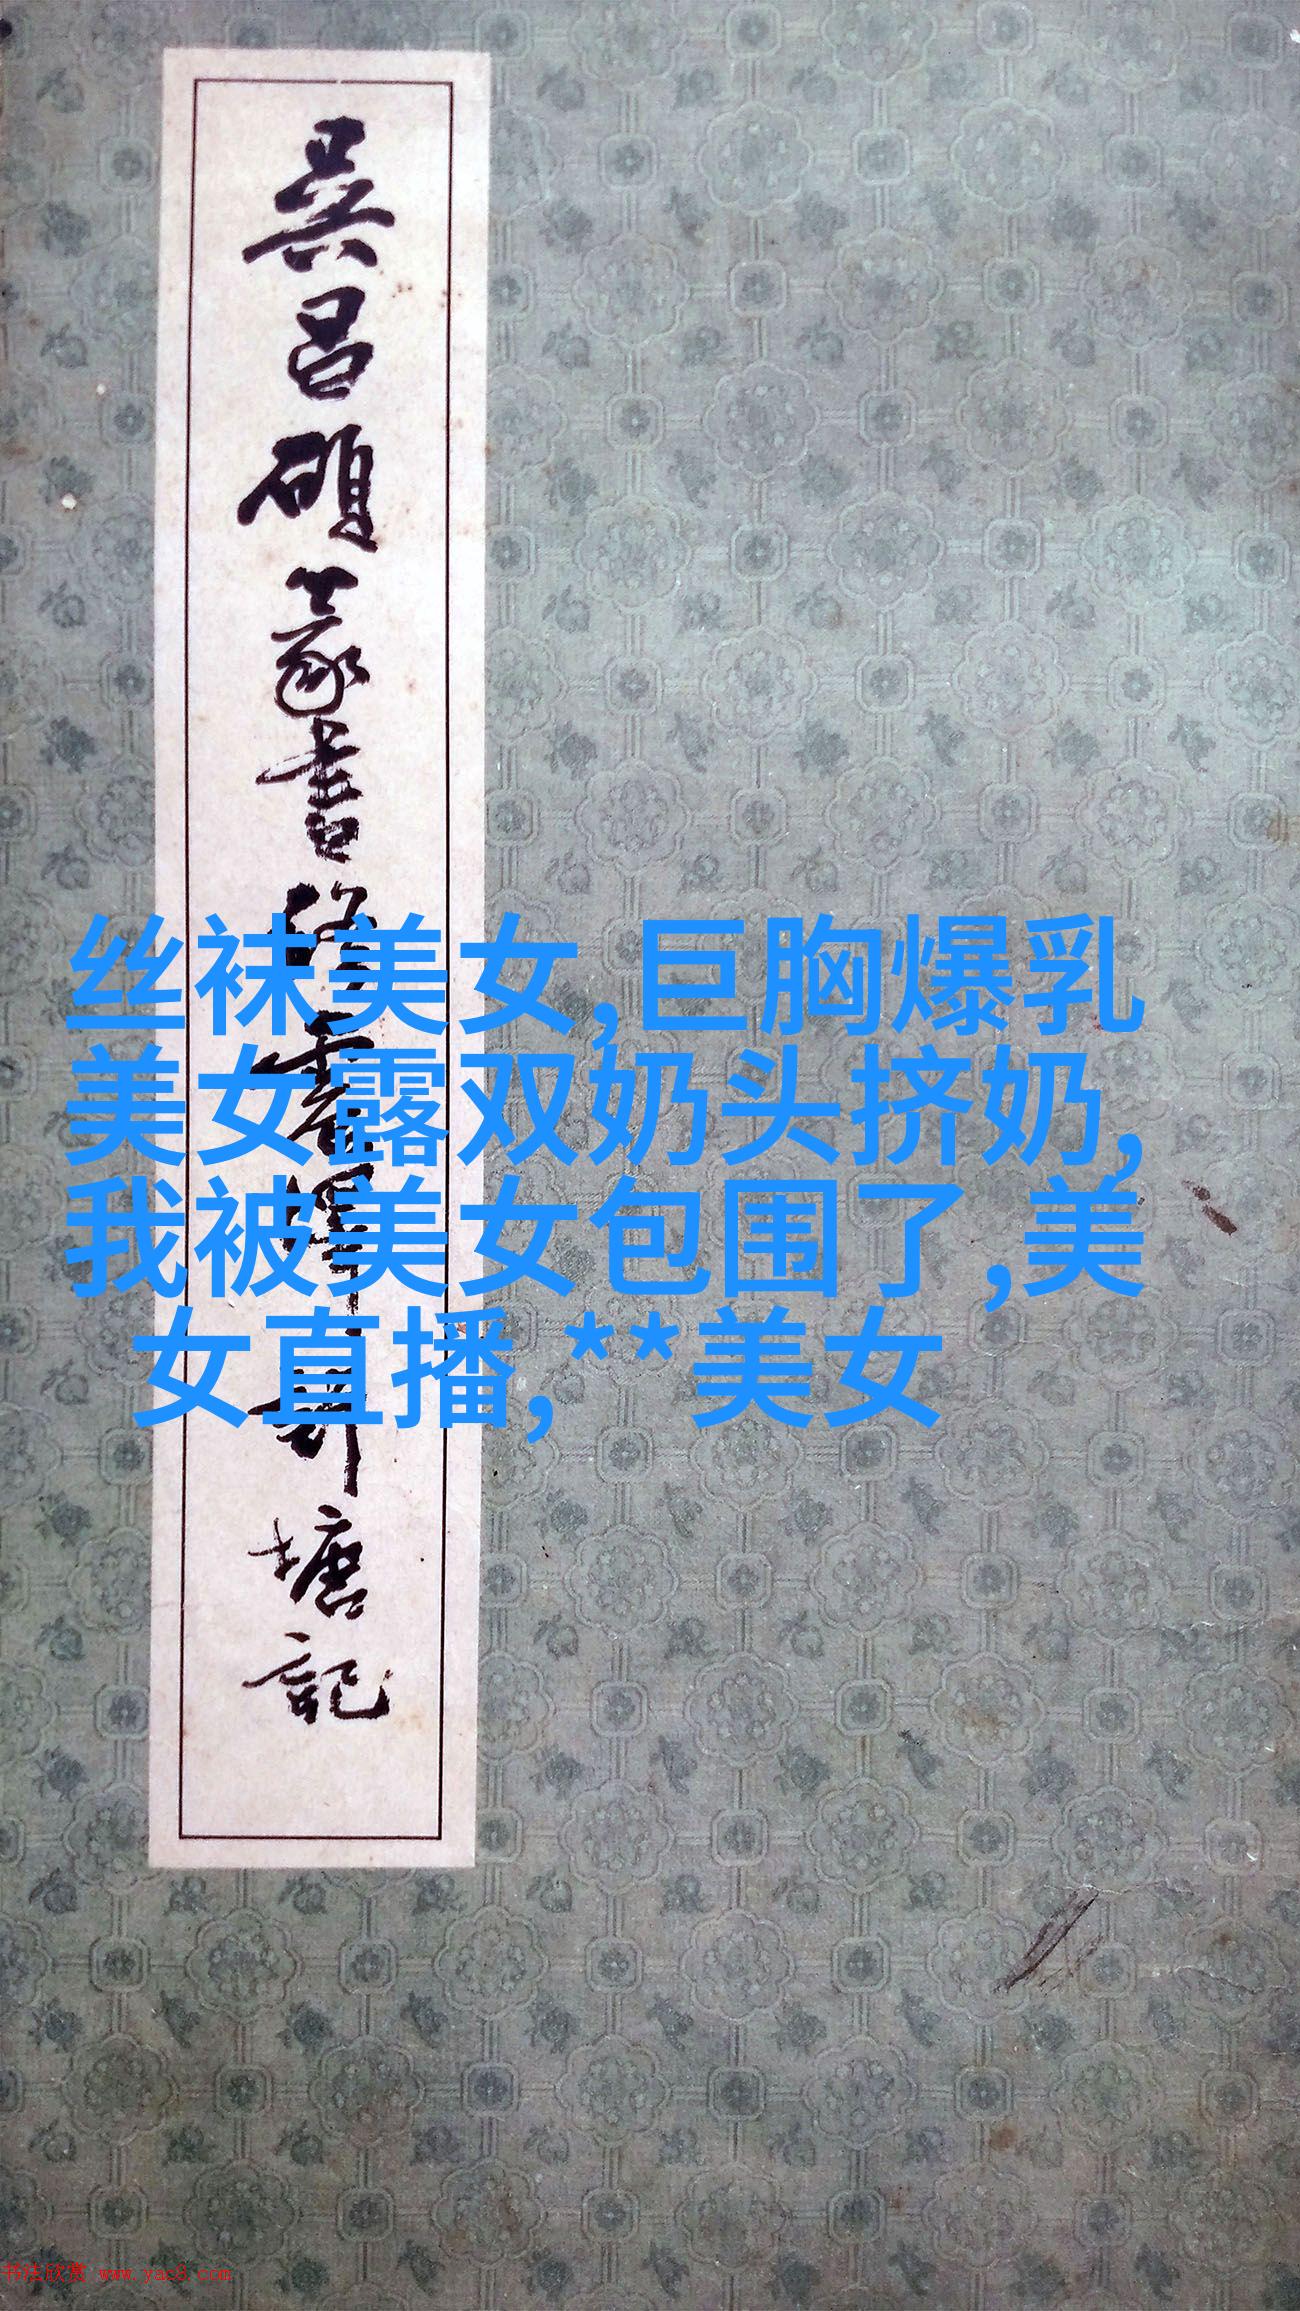 吴昌硕篆书修震泽许塘記
丝袜美女,巨胸爆乳
美女露双奶头挤奶,
我被美女包围了,美
女直播,**美女
书法欣赏 www.yac8.com